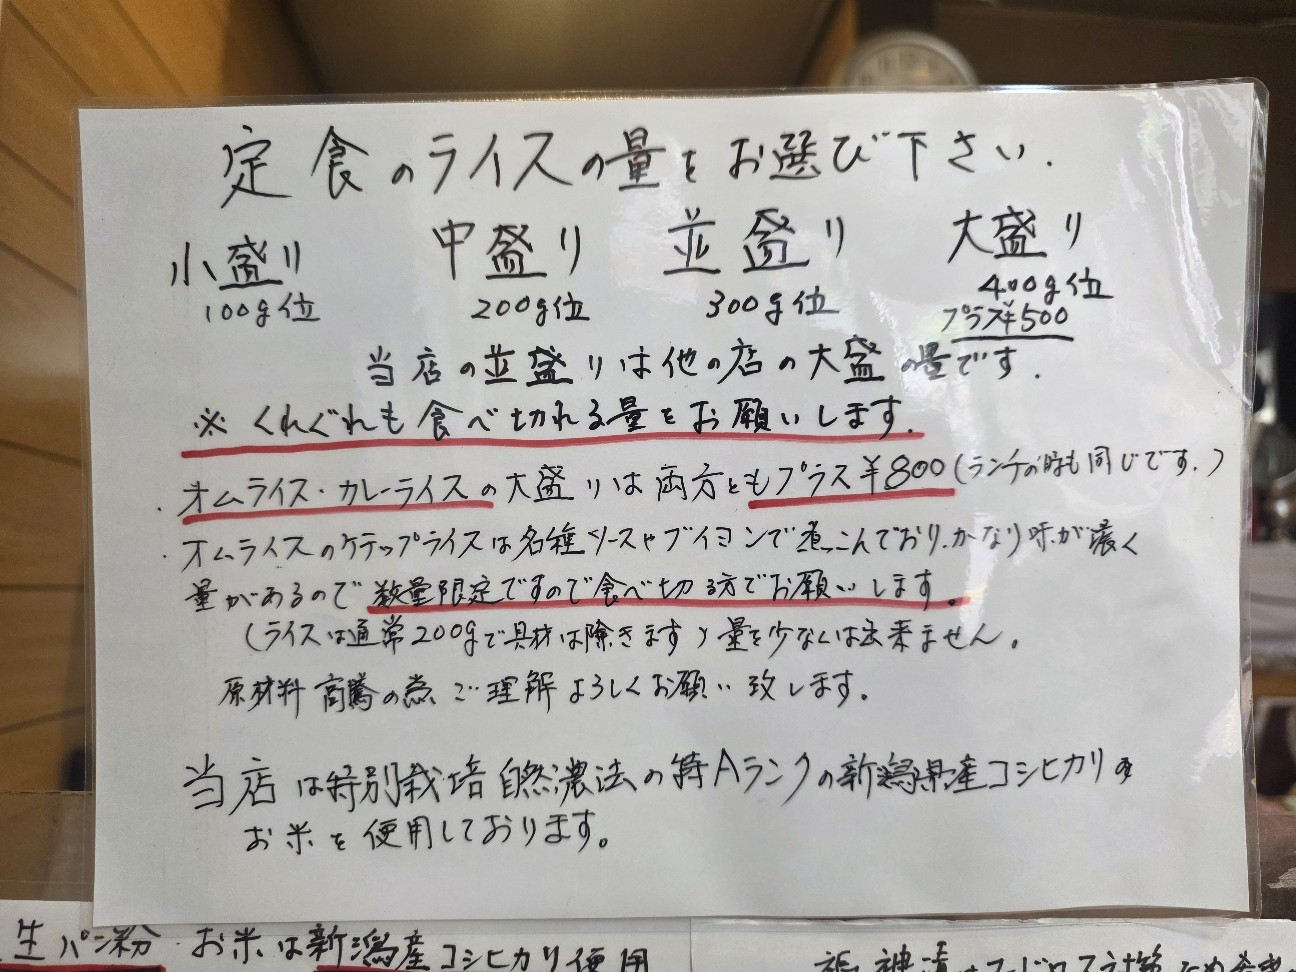 定食のライスの量をお選び下さい.
小盛り 中盛り 並盛り 大盛り
100g位 200g位 300g位 400g位
プラス¥500
当店の並盛りは他の店の大盛の量です.
※くれぐれも食べ切れる量をお願いします.
・オムライス・カレーライスの大盛りは両方ともプラス¥800(ランチの時も同じです.)
・オムライスのケチップライスは名種ソースやブイヨンで煮こんでおり、かなり味が濃く
量があるので数量限定ですので食べ切る方でお願いします。
(ライスは通常200gで具材は除きます)量を少なくは出来ません。
原材料高騰の点ご理解よろしくお願い致します。
当店は特別栽培自然濃法の特Aランクの新潟県産コシヒカリの
お米を使用しております。
生パン粉 お米は新潟産コシヒカリ使用